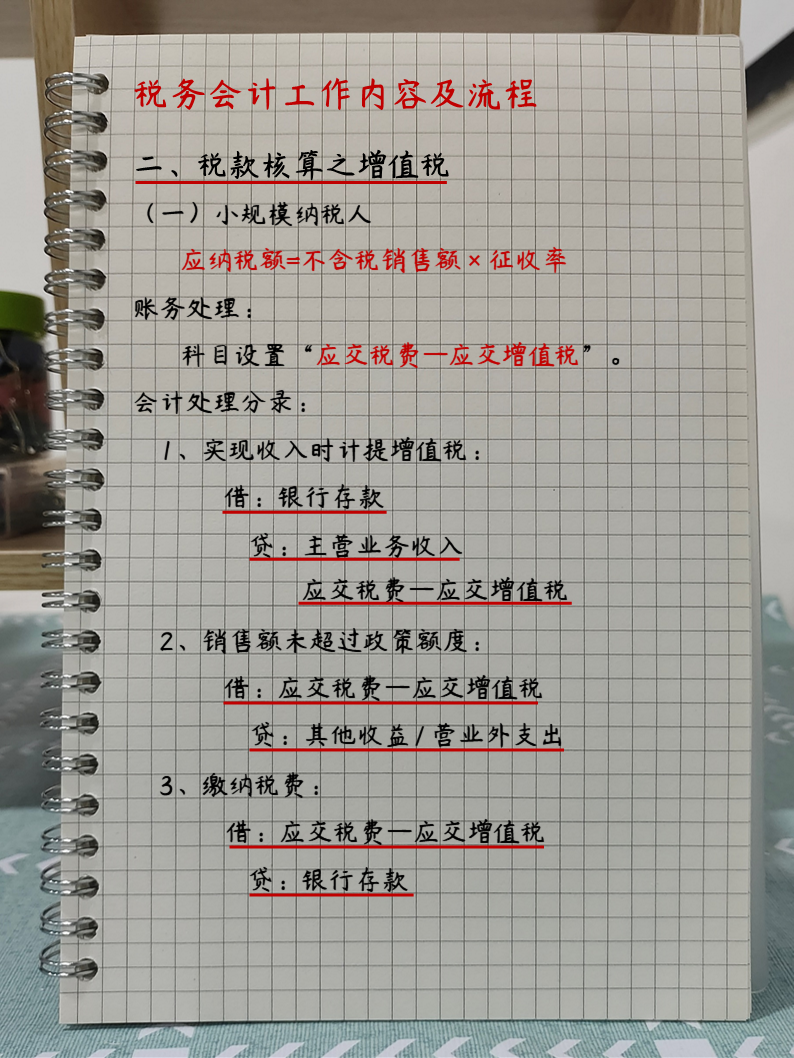 税务会计工作内容及流程
二、税款核算之增值税
（一）小规模纳税人
应纳税额=不含税销售额×征收率
账务处理：
科目设置“应交税费—应交增值税”。
会计处理分录：
1、实现收入时计提增值税：
借：银行存款
贷：主营业务收入
应交税费—应交增值税
2、销售额未超过政策额度：
借：应交税费—应交增值税
贷：其他收益/营业外支出
3、缴纳税费：
借：应交税费—应交增值税
贷：银行存款